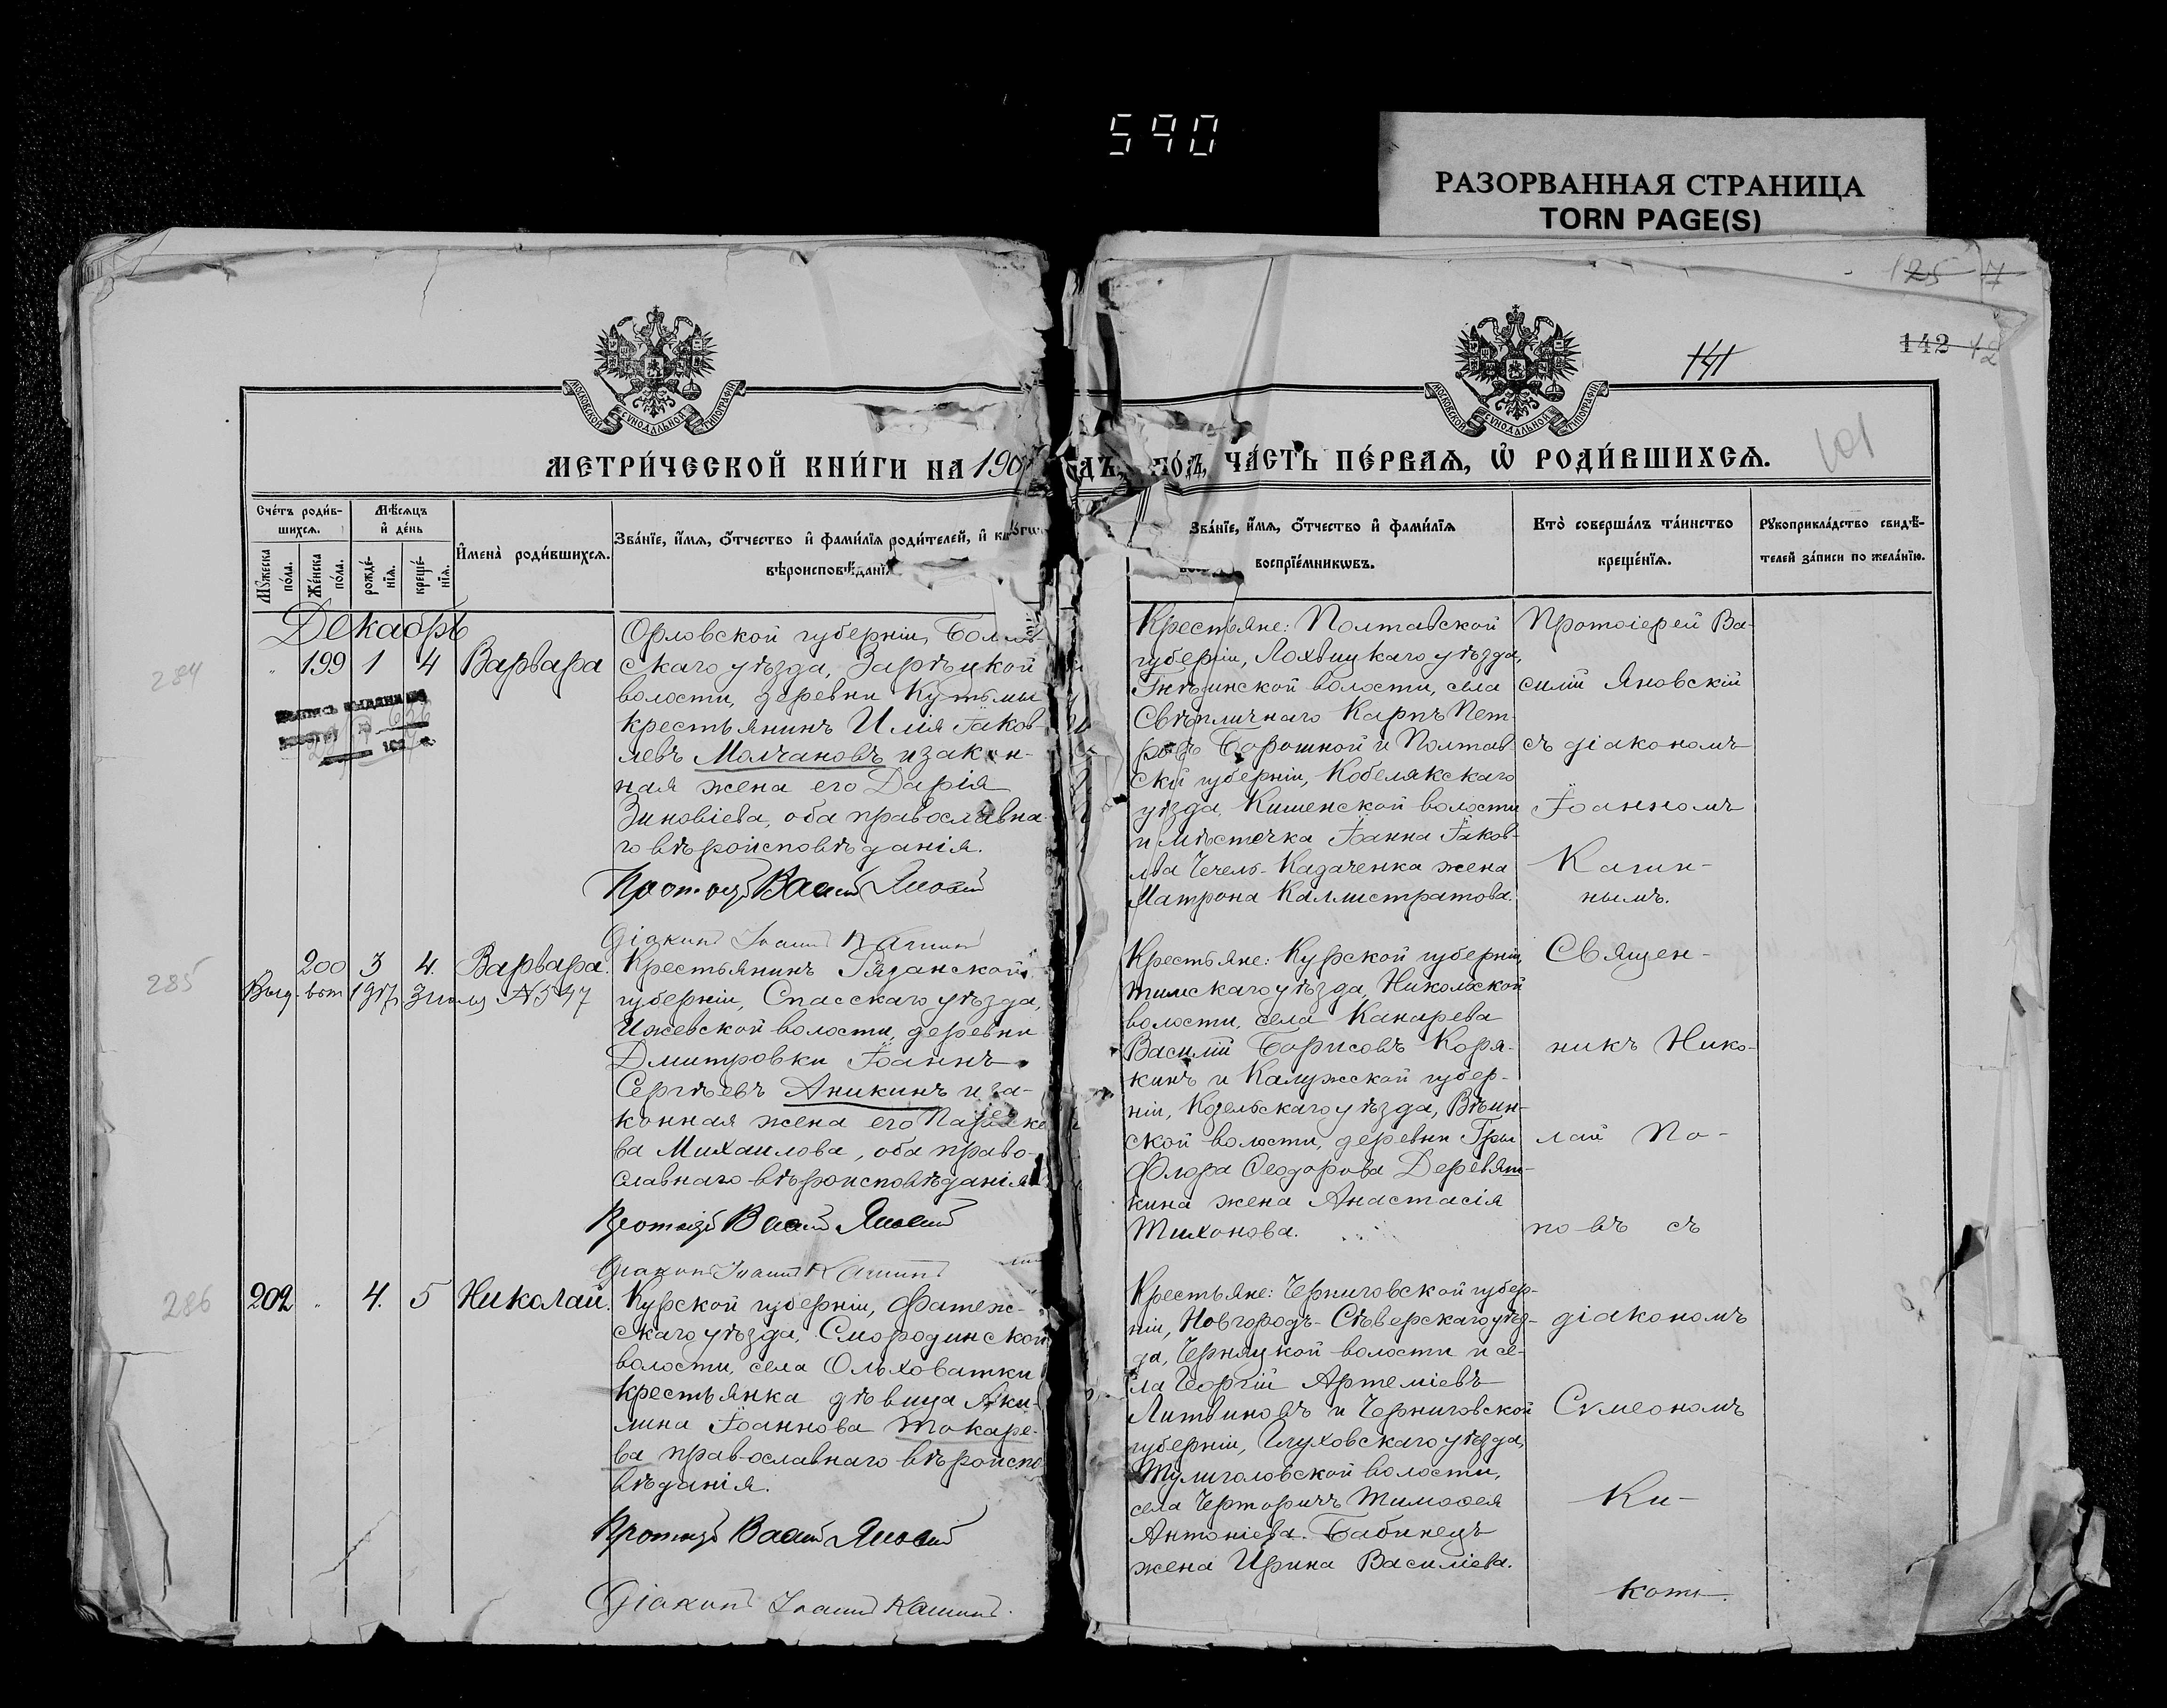 590
РАЗОРВАННАЯ СТРАНИЦА
TORN PAGE(S)
125
142
141
101
МОСКОВСКОЙ СѴНОДАЛЬНОЙ ТИПОГРАФІИ
МОСКОВСКОЙ СѴНОДАЛЬНОЙ ТИПОГРАФІИ
МЕТРИ́ЧЕСКОЙ КНИ́ГИ НА 190
ГО́ДЪ, ЧА́СТЬ ПЕ́РВАЯ, Ѡ҆ РОДИ́ВШИХСЯ.
Сче́тъ роди́в-
шихся.
Мѣ́сяцъ
и҆ де́нь
Мꙋ́жеска
по́ла.
Же́нска
по́ла.
рожде́-
нїя.
креще́-
нїя.
И҆мена̀ роди́вшихся.
Зва́нїе, и҆́мя, ѻ҆́тчество и҆ фами́лїя роди́телей, и҆
вѣроисповѣ́данїя
Зва́нїе, и҆́мя, ѻ҆́тчество и҆ фами́лїя
воспрїе́мникѡвъ.
Кто̀ соверша́лъ та́инство
креще́нїя.
Рꙋкоприкла́дство свидѣ́-
телей за́писи по жела́нїю.
Декабрь
284
199 1 4 Варвара
Орловской губерніи, Болхов-
скаго уѣзда, Зарѣцкой
волости, деревни Кутьмы
крестьянинъ Илія Іаков-
левъ Молчановъ и закон-
ная жена его Дарія
Зиновіева, оба православна-
го вѣроисповѣданія.
Протоіер Василій Яновскій
Діаконъ Іоаннъ Кашинъ
Крестьяне: Полтавской
губерніи, Лохвицкаго уѣзда,
волости, села
Свѣпличнаго Карпъ Пет-
ровъ Борошной и Полтав-
ской губерніи, Кобелякскаго
уѣзда, Кишенской волости
и мѣстечка Іоанна Іаков-
лева Чечель-Кадаченка жена
Матрона Каллистратова.
Протоіерей Ва-
силій Яновскій
съ діакономъ
Іоанномъ
Кашин-
нымъ.
285
200 3 4. Варвара.
Выд. вып 1917 3 іюля №547
Крестьянинъ Рязанской
губерніи, Спасскаго уѣзда,
Ижевской волости, деревни
Дмитровки Іоаннъ
Сергѣевъ Аникинъ и за-
конная жена его Параске
ва Михаилова, оба право-
славнаго вѣроисповѣданія
Протоіер Василій Яновскій
Діаконъ Іоаннъ Кашинъ
Крестьяне: Курской губерніи,
Тимскаго уѣзда, Никольской
волости, села Канарева
Василій Борисовъ Коря-
кинъ и Калужской губер-
ніи, Козельскаго уѣзда, Вѣин-
ской волости, деревни Гры
Флора Ѳеодорова Деревят-
кина жена Анастасія
Тихонова.
Священ-
никъ Нико-
лай По-
повъ съ
286
202 4. 5 Николай.
Курской губерніи, Фатеж-
скаго уѣзда, Смородинской
волости, села Ольховатки
крестьянка дѣвица Аки-
лина Іоаннова Токаре-
ва православнаго вѣроиспо
вѣданія.
Протоіер Василій Яновскій
Діаконъ Іоаннъ Кашинъ.
Крестьяне: Черниговской губер-
ніи, Новгородъ-Сѣверскаго уѣз-
да, Черняцкой волости и се-
ла Георгій Артеміевъ
Литвиновъ и Черниговской
губерніи, Глуховскаго уѣзда,
Тулиголовской волости,
села Черторичъ Тимоѳея
Антоніева Бабинецъ
жена Ирина Василіева.
діакономъ
Сѵмеономъ
Ки-